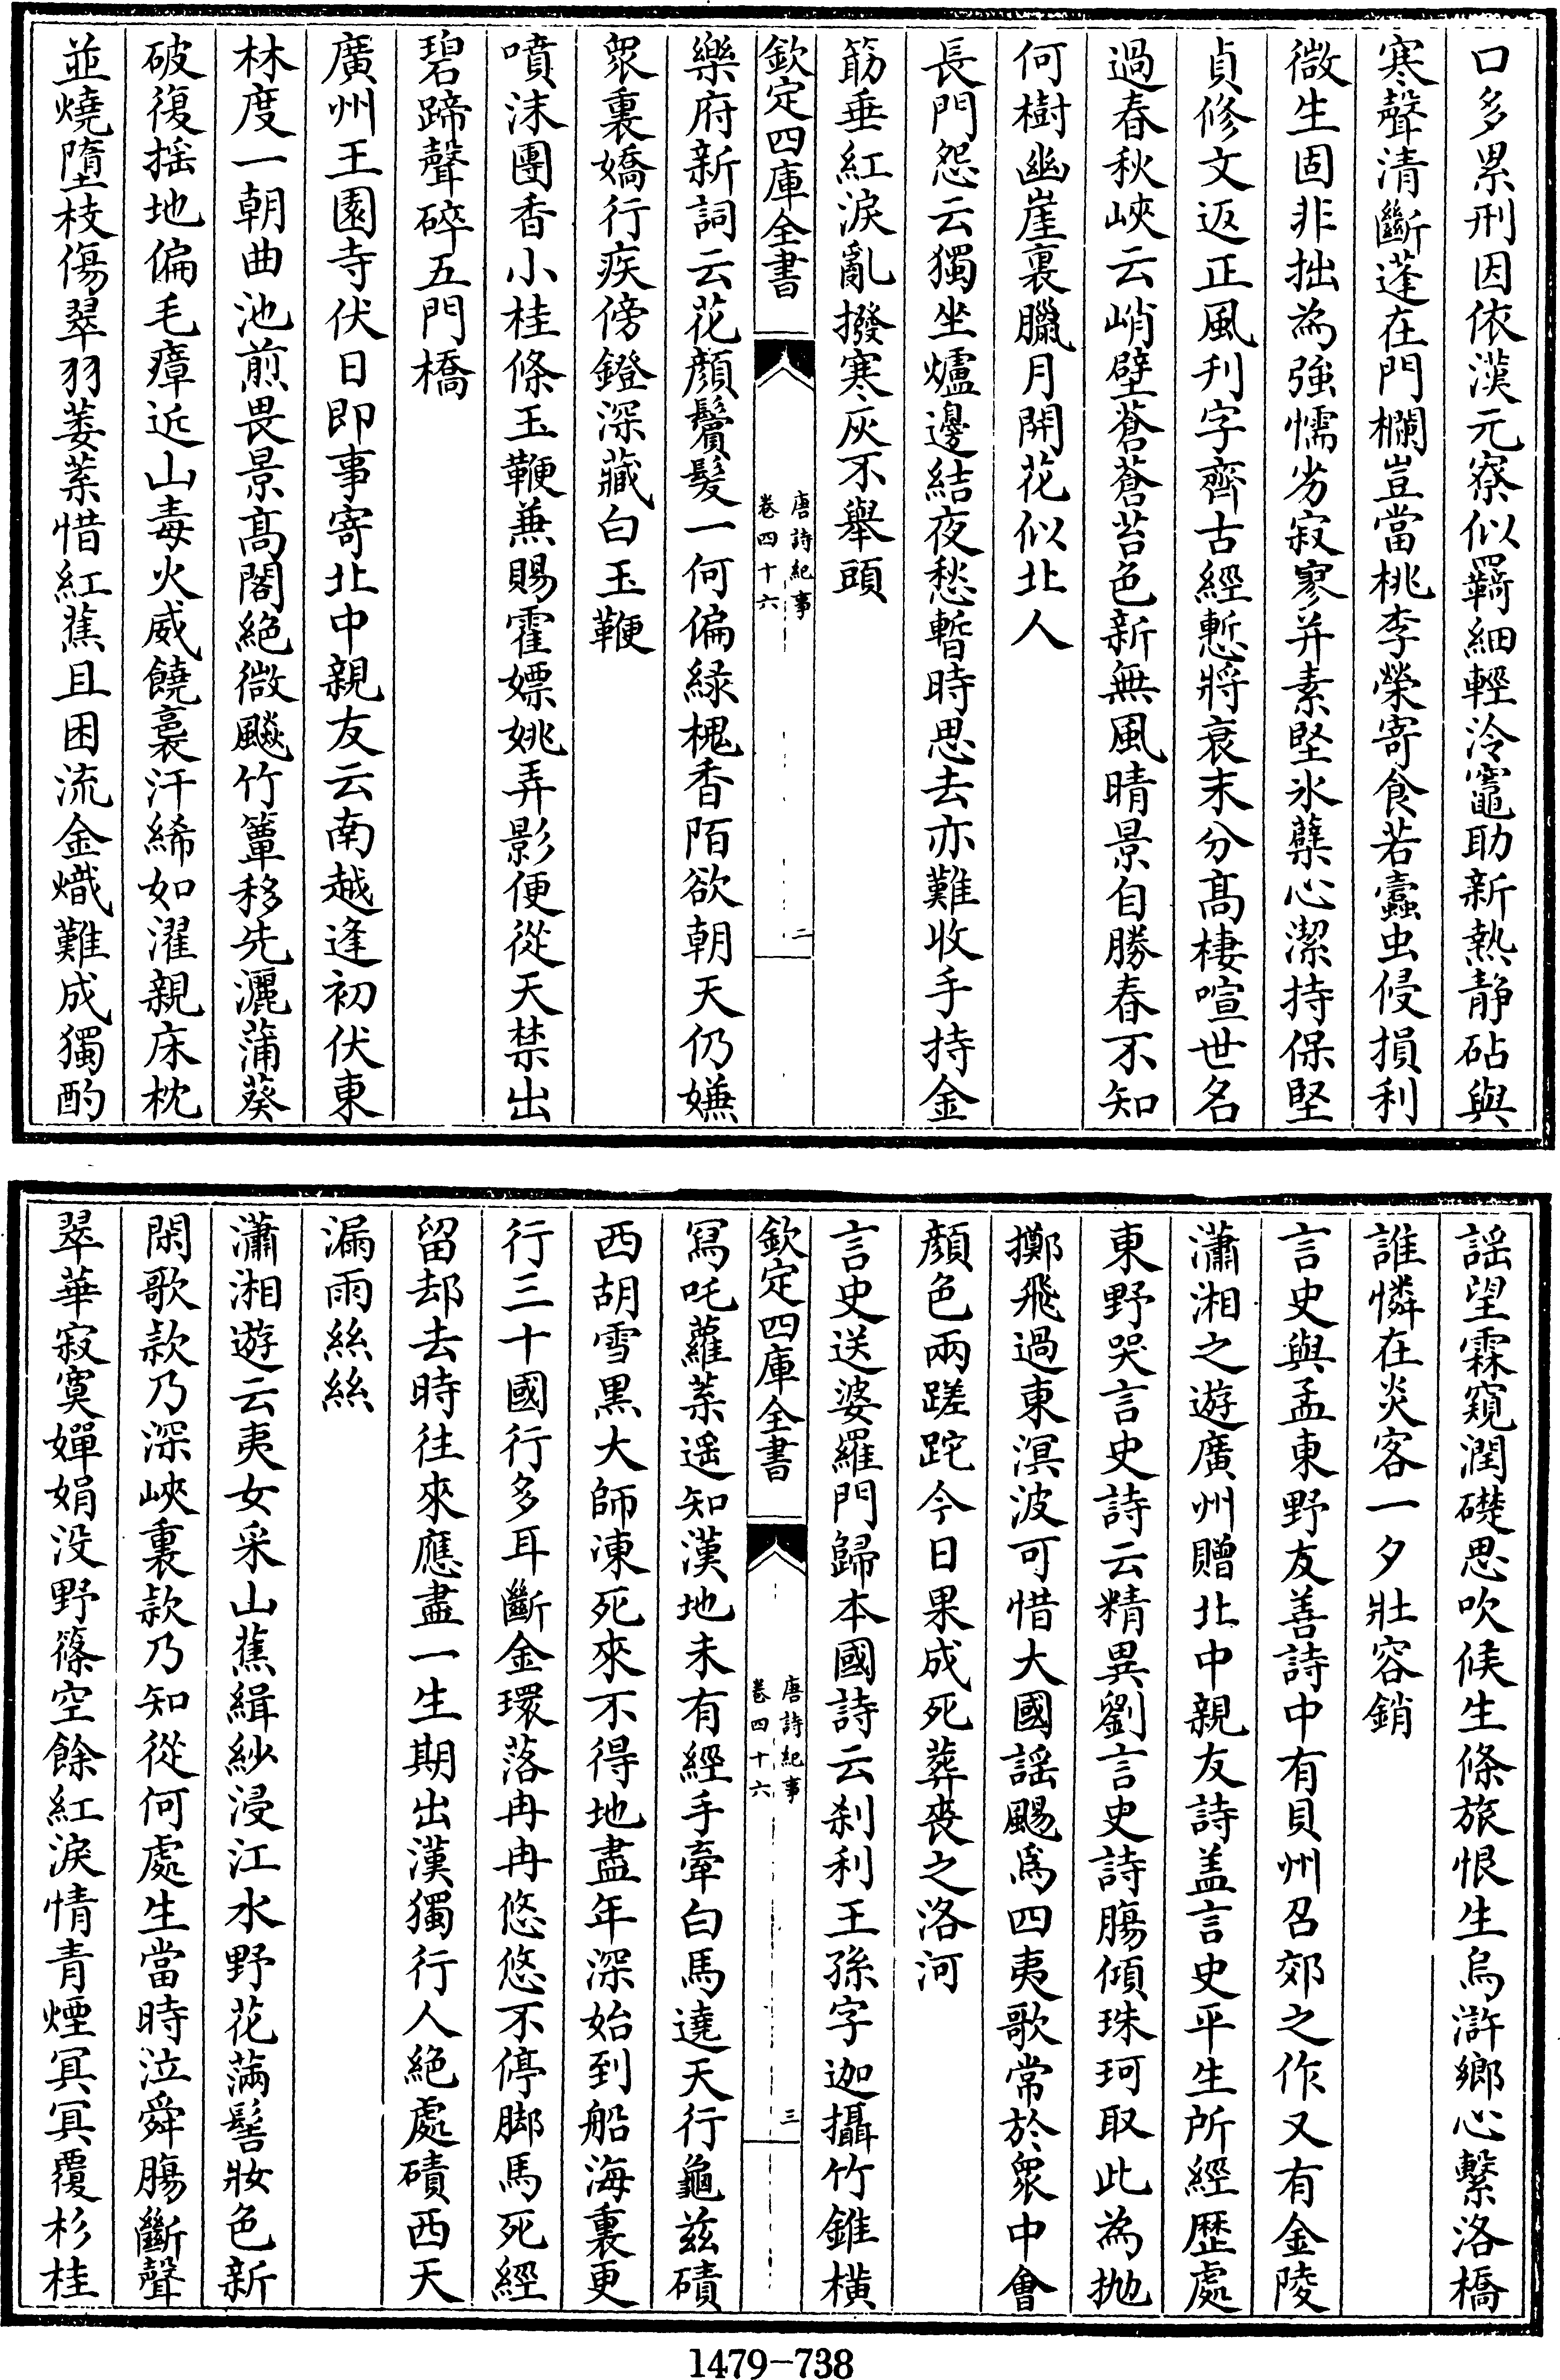 口多累刑因依漢元寮似羇細輕泠竈助新熱静砧與
寒聲清斷蓬在門欄豈當桃李榮寄食若蠹虫侵損利
微生固非拙為強懦劣寂寥并素堅氷蘖心潔持保堅
貞修文返正風刋字齊古經慙將衰末分髙棲喧世名
過春秋峽云峭壁蒼蒼苔色新無風晴景自勝春不知
何樹幽崖裏臘月開花似北人
長門怨云獨坐爐邊結夜愁暫時思去亦難收手持金
筯垂紅淚亂撥寒灰不舉頭
欽定四庫全書
唐詩紀事
卷四十六
二
樂府新詞云花顔鬒髮一何偏緑槐香陌欲朝天仍嫌
衆裏嬌行疾傍鐙深藏白玉鞭
噴沫團香小桂條玉鞭兼賜霍嫖姚弄影便從天禁出
碧蹄聲碎五門橋
廣州王園寺伏日即事寄北中親友云南越逢初伏東
林度一朝曲池煎畏景髙閣絶微颷竹簟移先灑蒲葵
破復揺地偏毛瘴近山毒火威饒裛汗絺如濯親床枕
並燒墮枝傷翠羽萎葉惜紅蕉且困流金熾難成獨酌
謡望霖窺潤礎思吹候生條旅恨生烏滸鄉心繫洛橋
誰憐在炎客一夕壯容銷
言史與孟東野友善詩中有貝州召郊之作又有金陵
瀟湘之遊廣州贈北中親友詩盖言史平生所經歴處
東野哭言史詩云精異劉言史詩腸傾珠珂取此為抛
擲飛過東溟波可惜大國謡飏爲四夷歌常於衆中會
顔色兩蹉跎今日果成死葬喪之洛河
言史送婆羅門歸本國詩云刹利王孫字迦攝竹錐横
欽定四庫全書
唐詩紀事
卷四十六
三
冩吒蘿葉遥知漢地未有經手牽白馬遶天行龜兹磧
西胡雪黒大師凍死來不得地盡年深始到船海裏更
行三十國行多耳斷金環落冉冉悠悠不停脚馬死經
留却去時往來應盡一生期出漢獨行人絶處磧西天
漏雨絲絲
瀟湘遊云夷女采山蕉緝紗浸江水野花滿髻妝色新
閑歌欵乃深峽裏欵乃知從何處生當時泣舜腸斷聲
翠華寂寞嬋娟没野篠空餘紅淚情青煙冥冥覆杉桂
1479-738